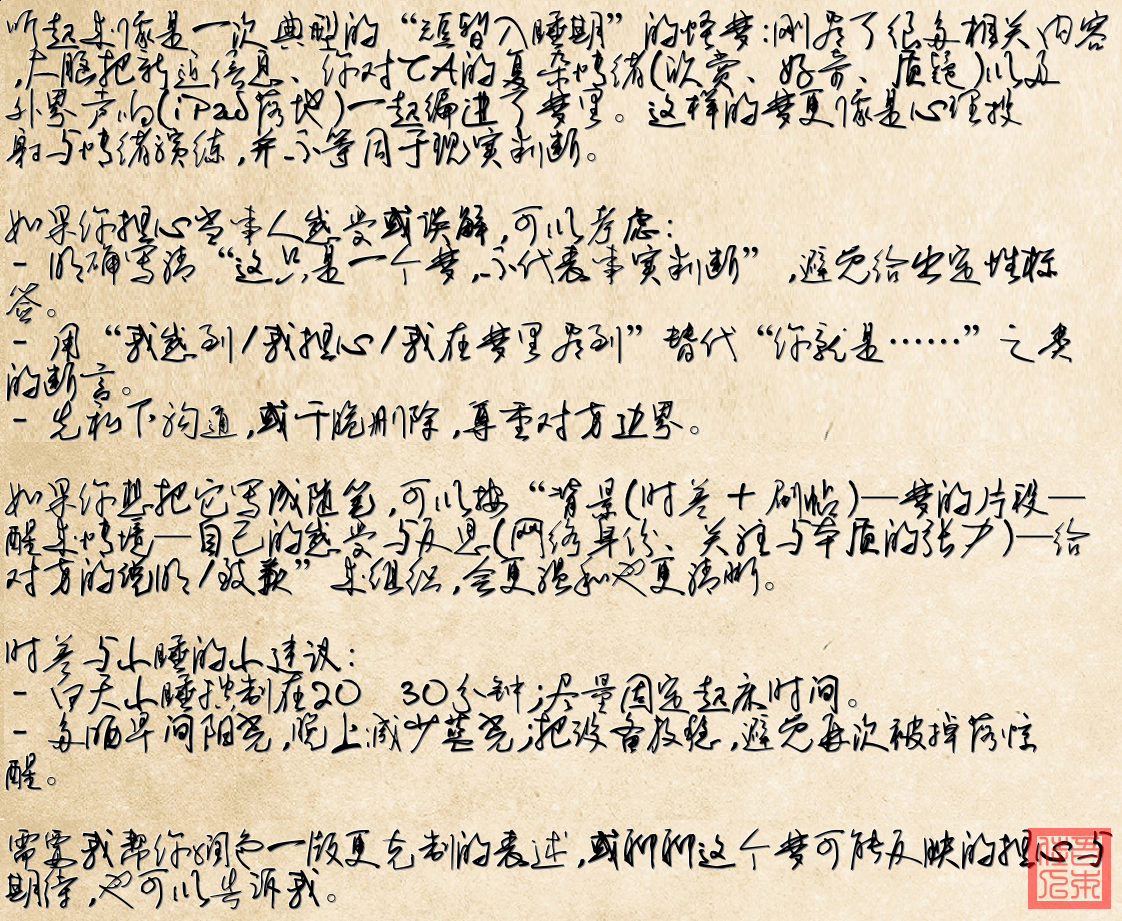 听起来像是一次典型的“短暂入睡期”的怪梦：刚看了很多相关内容
，大脑把新近信息、你对TA的复杂情绪（欣赏、好奇、质疑）以及
外界声响（iPad落地）一起编进了梦里。这样的梦更像是心理投
射与情绪演练，并不等同于现实判断。
如果你担心当事人感受或误解，可以考虑：
- 明确写清“这只是一个梦，不代表事实判断”，避免给出定性标
签。
- 用“我感到/我担心/我在梦里看到”替代“你就是……”之类
的断言。
- 先私下沟通，或干脆删除，尊重对方边界。
如果你想把它写成随笔，可以按“背景（时差+刷帖）—梦的片段—
醒来情境—自己的感受与反思（网络身份、关注与本质的张力）—给
对方的说明/致歉”来组织，会更温和也更清晰。
时差与小睡的小建议：
- 白天小睡控制在20 30分钟；尽量固定起床时间。
- 多晒早间阳光，晚上减少蓝光；把设备放稳，避免再次被掉落惊
醒。
需要我帮你润色一版更克制的表述，或聊聊这个梦可能反映的担心与
期待，也可以告诉我。